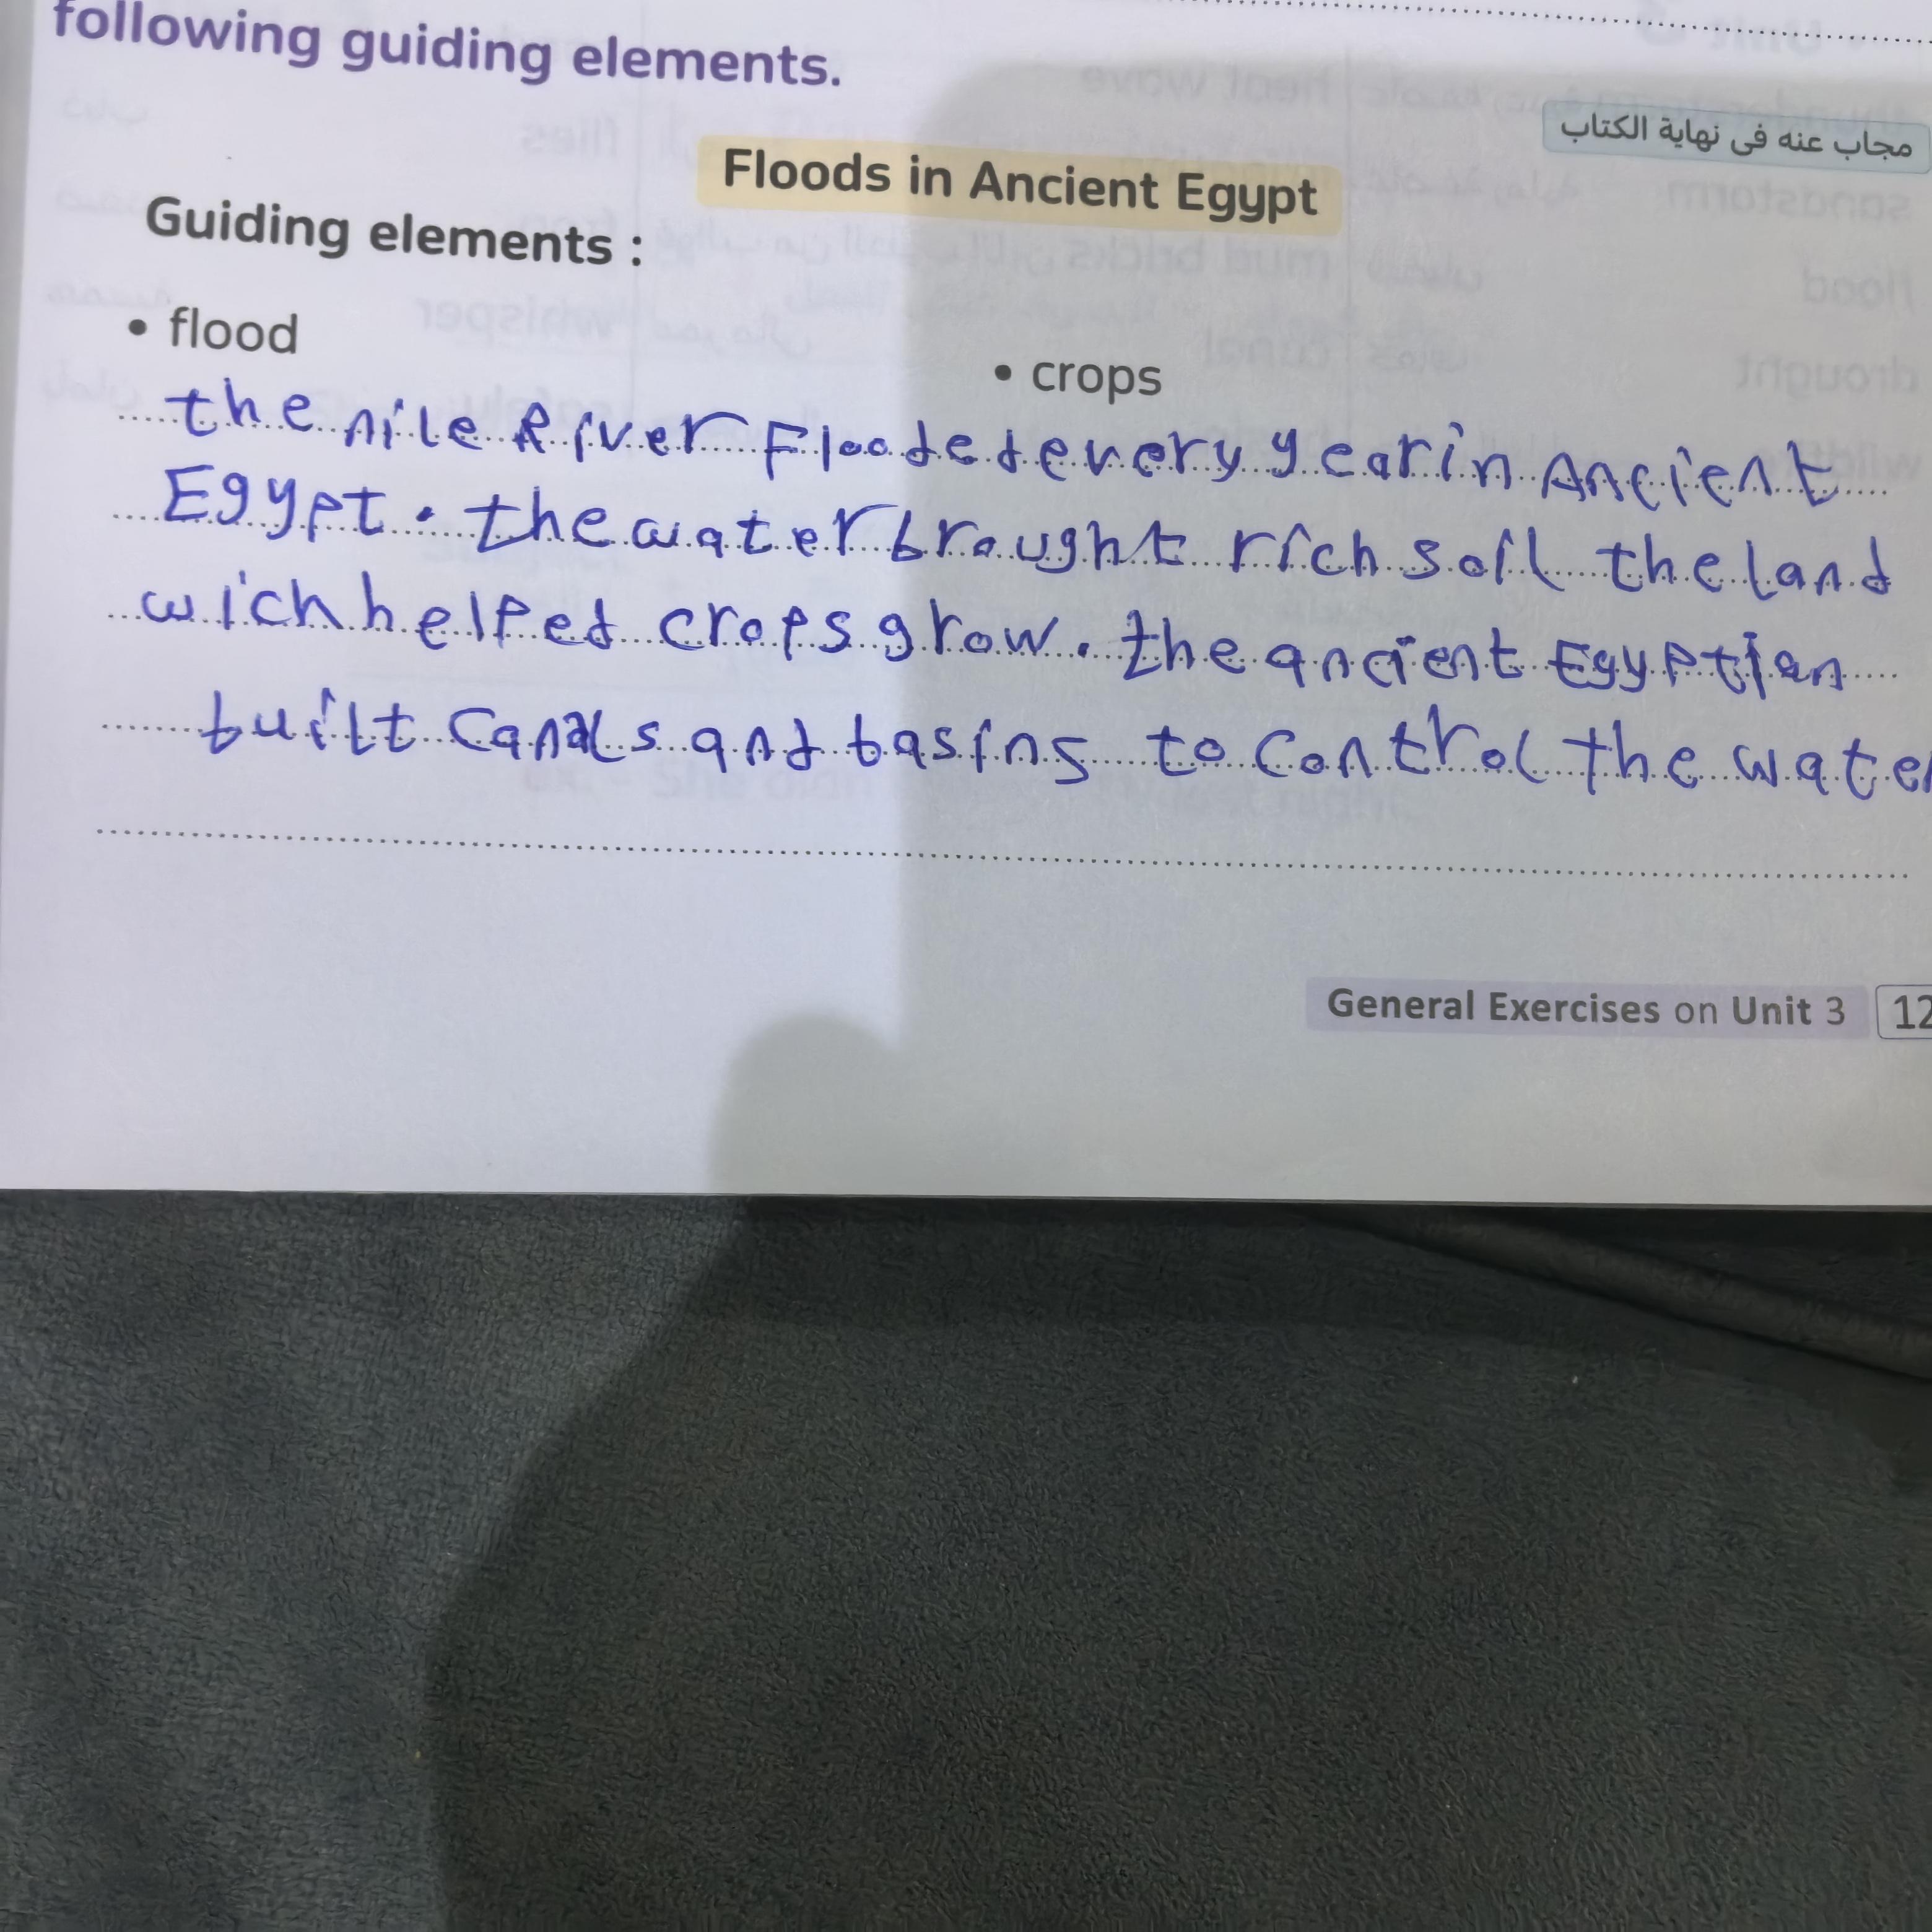 following guiding elements.
مجاب عنه فى نهاية الكتاب
Floods in Ancient Egypt
Guiding elements :
• flood
• crops
the nile River Flooded every year in Ancient
Egypt. the water brought rich soil the land
wich helped crops grow. the ancient Egyptian
built Canals and basins to control the water
General Exercises on Unit 3
12